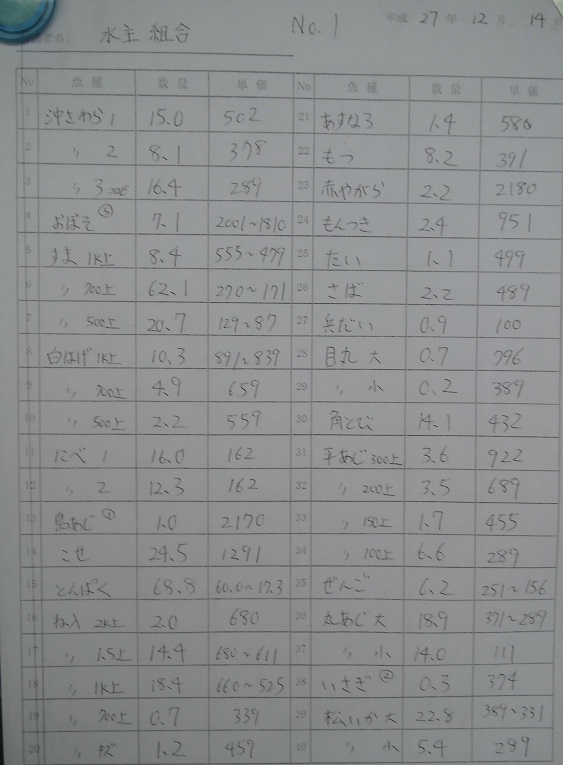 水主組合 No.1 平成 27年 12月 14
No 魚種 数量 単価 No 魚種 数量 単価
1 沖さわら1 15.0 502 21 あすなろ 1.4 580
2 〃 2 8.1 378 22 もつ 8.2 391
3 〃 3 16.4 289 23 赤やがら 2.2 2180
4 よぼそ 7.1 2001~1810 24 もんつき 2.4 951
5 すま 1K上 8.4 555~479 25 たい 1.1 499
6 〃 700上 62.1 270~171 26 さば 2.2 489
7 〃 500上 20.7 129~87 27 兵だい 0.9 100
8 白はげ 1K上 10.3 891~839 28 目丸 大 0.7 796
9 〃 700上 4.9 659 29 〃 小 0.2 389
10 〃 500上 2.2 559 30 角とび 14.1 432
11 にべ 1 16.0 162 31 平あじ 300上 3.6 922
12 〃 2 12.3 162 32 〃 200上 3.5 689
13 島あじ 1.0 2170 33 〃 150上 1.7 455
14 こせ 24.5 1291 34 〃 100上 6.6 289
15 とんぱく 68.8 60.0~17.3 35 ぜんご 6.2 251~156
16 ね入 2K上 2.0 680 36 丸あじ 大 18.9 371~289
17 〃 1.5上 14.4 680~611 37 〃 小 14.0 111
18 〃 1K上 18.4 660~525 38 いさぎ② 0.3 374
19 〃 700上 0.7 339 39 松いか 大 22.8 389~331
20 〃 キズ 1.2 459 40 〃 小 5.4 289